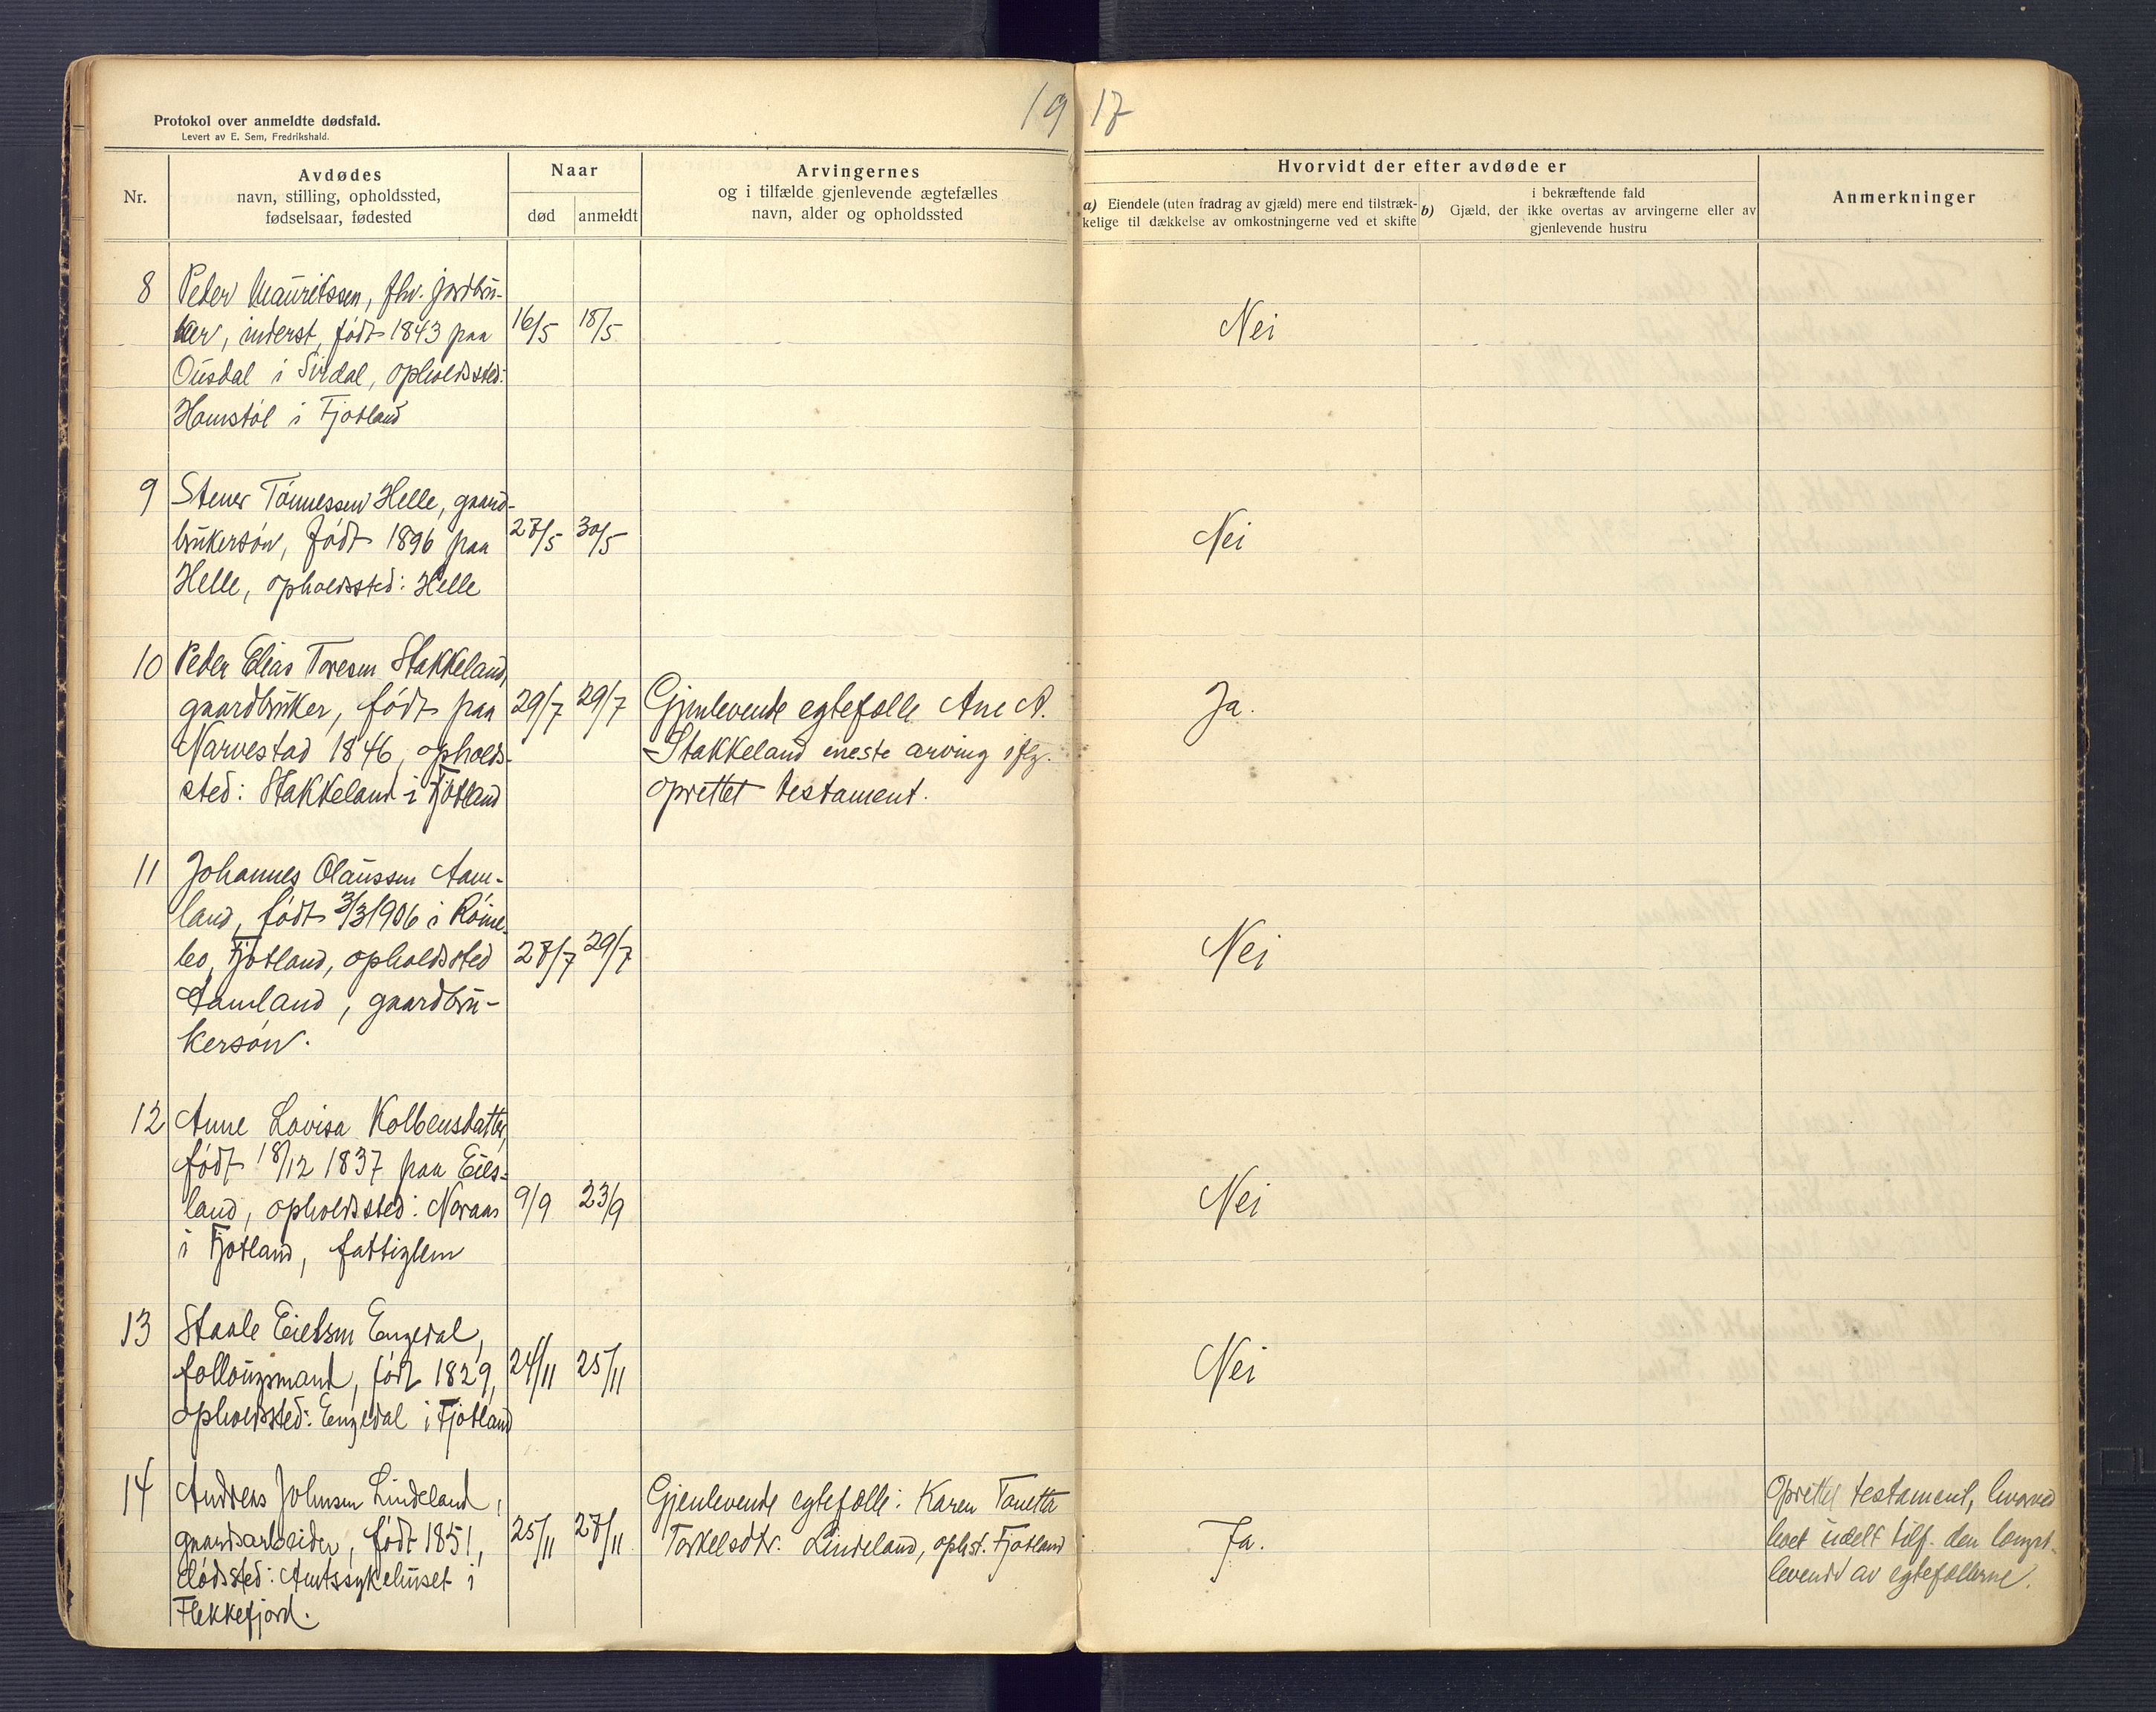 1917
Protokol over anmeldte dødsfald.
Levert av E. Sem, Fredrikshald.
Nr.
Avdødes
navn, stilling, opholdssted,
fødselsaar, fødested
Naar
død
anmeldt
Arvingernes
og i tilfælde gjenlevende ægtefælles
navn, alder og opholdssted
Hvorvidt der efter avdøde er
a) Eiendele (uten fradrag av gjæld) mere end tilstræk-
kelige til dækkelse av omkostningerne ved et skifte
i bekræftende fald
b) Gjæld, der ikke overtas av arvingerne eller av
gjenlevende hustru
Anmerkninger
8 Peder Mauritssen, fhv. jordbru-
ker, inderst, født 1843 paa
Ousdal i Sirdal, opholdssted:
Homstøl i Fjotland
16/5 18/5
Nei
9 Stener Tønnessen Helle, gaard-
brukersøn, født 1896 paa
Helle, opholdssted: Helle
27/5 30/5
Nei
10 Peder Elias Toresen Stakkeland,
gaardbruker, født paa
Narvestad 1846, opholds-
sted: Stakkeland i Fjotland
29/7 29/7
Gjenlevende egtefælle Ane A.
Stakkeland eneste arving iflg.
oprettet testament.
Ja.
11 Johannes Olaussen Aam-
land, født 3/3 1906 i
Fjotland, opholdssted
Aamland, gaardbru-
kersøn.
27/7 29/7
Nei
12 Anne Lovisa Kolbensdatter,
født 18/12 1837 paa Eies-
land, opholdssted: Noraas
i Fjotland, fattiglem
9/9 23/9
Nei
13 Staale Eielsen Engedal,
follougsmand, født 1829,
opholdssted: Engedal i Fjotland
24/11 25/11
Nei
14 Andreas Johnsen Lindeland,
gaardsarbeider, født 1851,
dødssted: Amtssykehuset i
Flekkefjord.
25/11 27/11
Gjenlevende egtefælle: Karen Tonetta
Torkelsdtr. Lindeland, ophst. Fjotland
Ja.
Oprettet testament, hvorved
boet udelt tilf. den længst-
levende av egtefællerne.